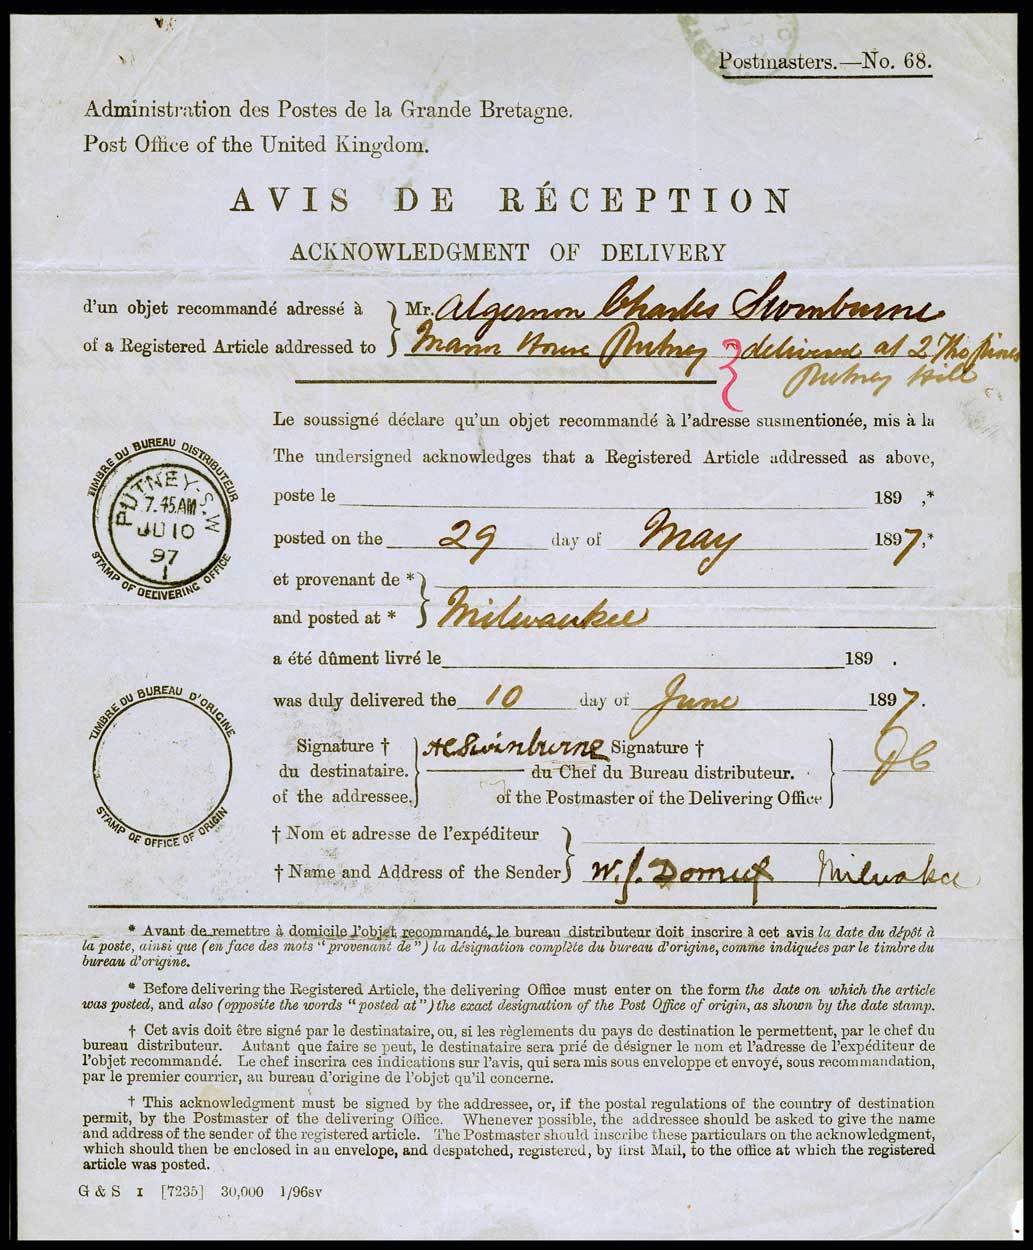 Postmasters.—No. 68.
Administration des Postes de la Grande Bretagne.
Post Office of the United Kingdom.
AVIS DE RÉCEPTION
ACKNOWLEDGMENT OF DELIVERY
d'un objet recommandé adressé à } Mr. Algernon Charles Swinburne
of a Registered Article addressed to } Manor House Putney } delivered at 2 The Pines
Putney Hill
Le soussigné déclare qu'un objet recommandé à l'adresse susmentionée, mis à la
The undersigned acknowledges that a Registered Article addressed as above,
poste le 189 ,*
posted on the 29 day of May 1897,*
et provenant de * }
and posted at * } Milwaukee
a été dûment livré le 189 .
was duly delivered the 10 day of June 1897.
TIMBRE DU BUREAU DISTRIBUTEUR
PUTNEY. S.W
7.45AM
JU 10
97
1
STAMP OF DELIVERING OFFICE
TIMBRE DU BUREAU D'ORIGINE
STAMP OF OFFICE OF ORIGIN
Signature † } ACSwinburne Signature † }
du destinataire. du Chef du Bureau distributeur.
of the addressee. of the Postmaster of the Delivering Office
† Nom et adresse de l'expéditeur }
† Name and Address of the Sender } W. J. Milwakee
* Avant de remettre à domicile l'objet recommandé, le bureau distributeur doit inscrire à cet avis la date du dépôt à
la poste, ainsi que (en face des mots "provenant de") la désignation complète du bureau d'origine, comme indiquées par le timbre du
bureau d'origine.
* Before delivering the Registered Article, the delivering Office must enter on the form the date on which the article
was posted, and also (opposite the words "posted at") the exact designation of the Post Office of origin, as shown by the date stamp.
† Cet avis doit être signé par le destinataire, ou, si les règlements du pays de destination le permettent, par le chef du
bureau distributeur. Autant que faire se peut, le destinataire sera prié de désigner le nom et l'adresse de l'expéditeur de
l'objet recommandé. Le chef inscrira ces indications sur l'avis, qui sera mis sous enveloppe et envoyé, sous recommandation,
par le premier courrier, au bureau d'origine de l'objet qu'il concerne.
† This acknowledgment must be signed by the addressee, or, if the postal regulations of the country of destination
permit, by the Postmaster of the delivering Office. Whenever possible, the addressee should be asked to give the name
and address of the sender of the registered article. The Postmaster should inscribe these particulars on the acknowledgment,
which should then be enclosed in an envelope, and despatched, registered, by first Mail, to the office at which the registered
article was posted.
G & S I [7235] 30,000 1/96sv